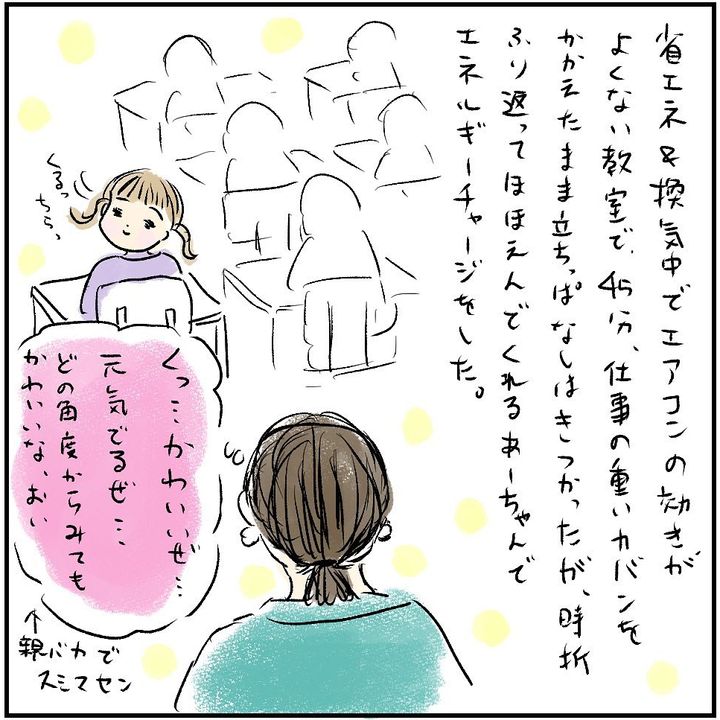 省エネ&換気中でエアコンの効きが
よくない教室で、45分、仕事の重いカバンを
かかえたまま立ちっぱなしはきつかったが、時折
ふり返ってほほえんでくれるあーちゃんで
エネルギーチャージをした。
くるっ
ちらっ
くっ…かわいいぜ…
元気でるぜ…
どの角度からみても
かわいいな、おい
↑親バカで
スミマセン